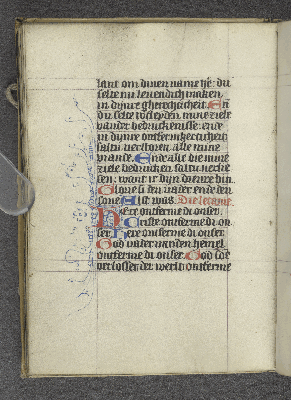 lant om dinen name h̄e: du
selte mi leuendich maken
in dijnre gherechticheit. En̄
du selte wtleyden mine ziele
vander bedruckenisse: ende
in dijnre ontfermherticheit
saltu verstroyen alle mine
viande. Ende alle die mine
ziele bedrucken saltu verlie
sen: want ic dijn dienre bin.
Glorie si den vader ende den
sone Alst was. Die letanie.
Here ontferme di onser.
Criste ontferme di on
ser. Here ontferme di onser
God vader vanden hemel
ontferme di onser. God sone
verlosser der werlt ontferme